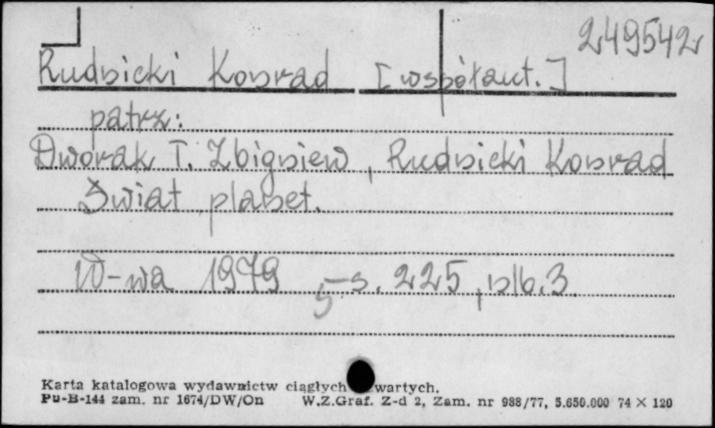 249542
Rudnicki Konrad [współaut.]
patrz:
Dworak T. Zbigniew, Rudnicki Konrad
Świat planet.
W-wa 1979 s. 225, nlb. 3
Karta katalogowa wydawnictw ciągłych wartych.
Pu-B-144 zam. nr 1674/DW/On W.Z.Graf. Z-d 2, Zam. nr 988/77, 5.650.000 74 × 120